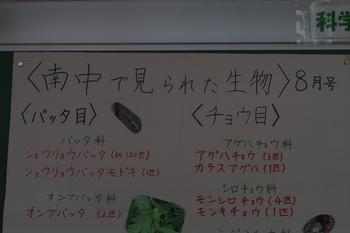 科学
〈南中で見られた生物〉8月号
〈バッタ目〉
バッタ科
ショウリョウバッタ(約120匹)
ショウリョウバッタモドキ(1匹)
オンブバッタ科
オンブバッタ(2匹)
〈チョウ目〉
アゲハチョウ科
アゲハチョウ(3匹)
カラスアゲハ(1匹)
シロチョウ科
モンシロチョウ(4匹)
モンキチョウ(1匹)